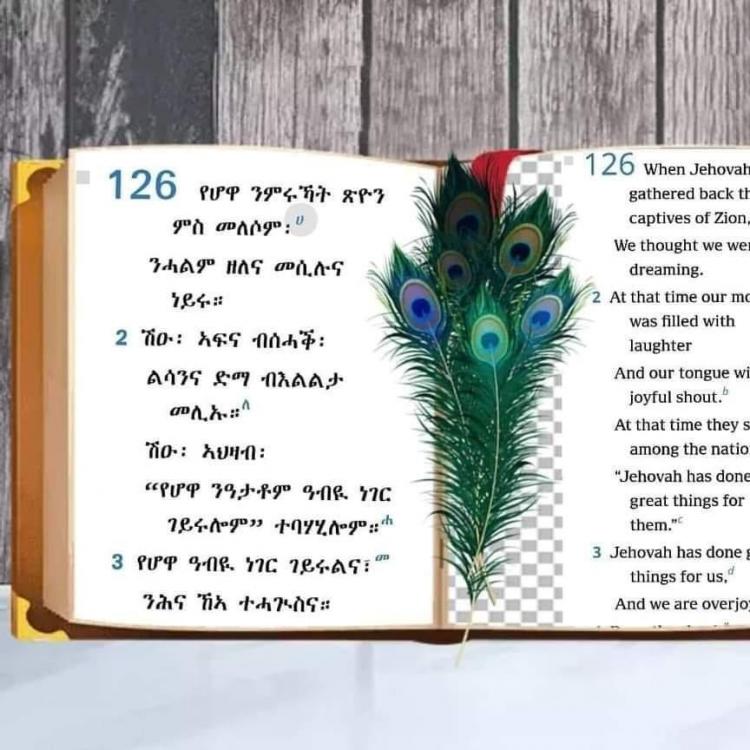 126 የሆዋ ንምሩኻት ጽዮን
ምስ መለሶም፡ ሀ
ንሓልም ዘለና መሲሉና
ነይሩ።
2 ሽዑ፡ ኣፍና ብሰሓቕ፡
ልሳንና ድማ ብእልልታ
መሊኡ። ለ
ሽዑ፡ ኣህዛብ፡
“የሆዋ ንዓታቶም ዓብዪ ነገር
ገይሩሎም” ተባሃሂሎም። ሐ
3 የሆዋ ዓብዪ ነገር ገይሩልና፣ መ
ንሕና ኸኣ ተሓጒስና።
126 When Jehovah
gathered back
captives of Zion,
We thought we
dreaming.
2 At that time our
was filled with
laughter
And our tongue
joyful shout. b
At that time they
among the
“Jehovah has done
great things for
them.” c
3 Jehovah has done
things for us, d
And we are